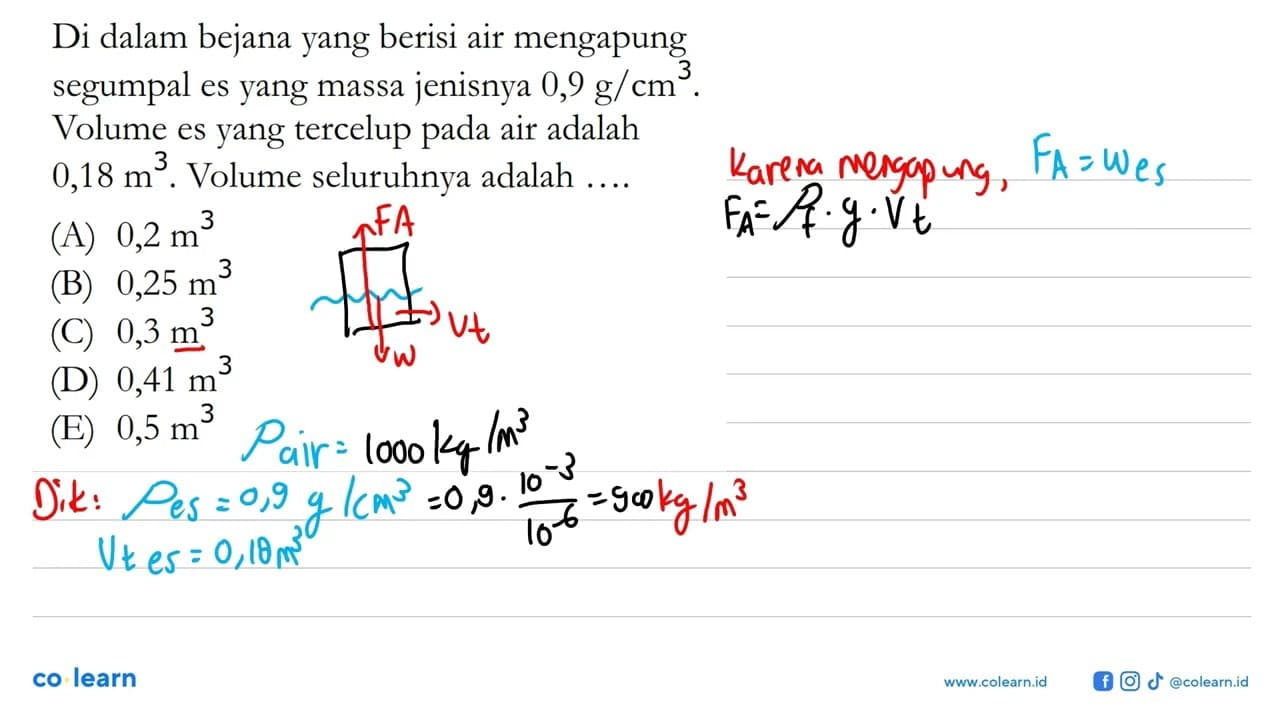 Di dalam bejana yang berisi air mengapung
segumpal es yang massa jenisnya 0,9 g/cm³.
Volume es yang tercelup pada air adalah
0,18 m³. Volume seluruhnya adalah ....
(A) 0,2 m³
(B) 0,25 m³
(C) 0,3 m³
(D) 0,41 m³
(E) 0,5 m³
FA
Vt
W
Karena mengapung, FA = Wes
FA = ρf . g . Vt
ρair = 1000 kg/m³
Dik: ρes = 0,9 g/cm³ = 0,9 . 10⁻³/10⁻⁶ = 900 kg/m³
Vt es = 0,18 m³
co learn
www.colearn.id
@colearn.id